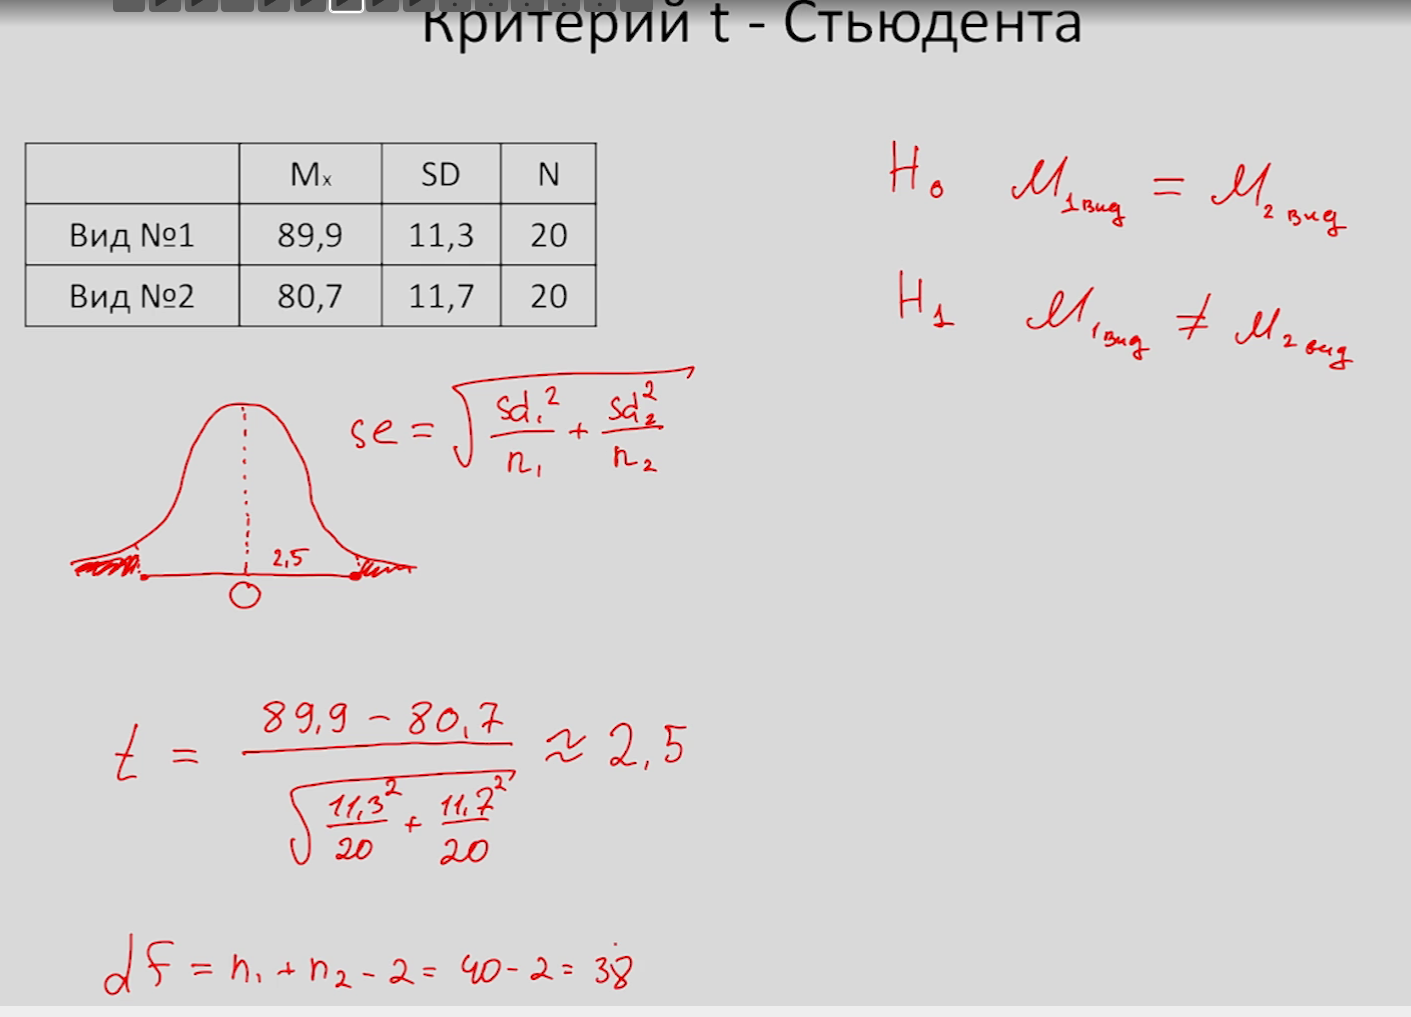 Критерий t - Стьюдента
Mₓ SD N
Вид №1 89,9 11,3 20
Вид №2 80,7 11,7 20
H₀ M₁ вид = M₂ вид
H₁ M₁ вид ≠ M₂ вид
se = √(sd₁²/n₁ + sd₂²/n₂)
2,5
0
t = (89,9 - 80,7) / √(11,3²/20 + 11,7²/20) ≈ 2,5
df = n₁ + n₂ - 2 = 40 - 2 = 38